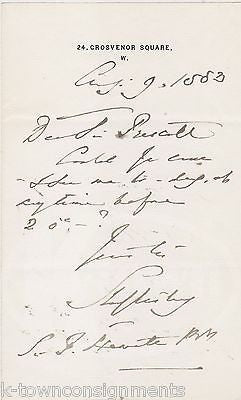 24, GROSVENOR SQUARE,
W.
Aug. 9. 1883
Dear Sir Prescott
Could you come
& see me to-day, at
any time before
2 o'c-?
Yours tr
Shaftesbury
k-townconsignments